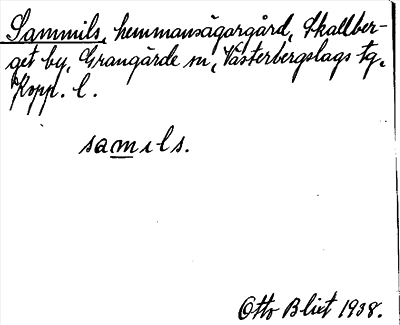 Sammils, hemmansägargård, Skallber-
get by, Grangärde sn, Västerbergslags tg.
Kopp. l.
samils.
Otto Blixt 1938.